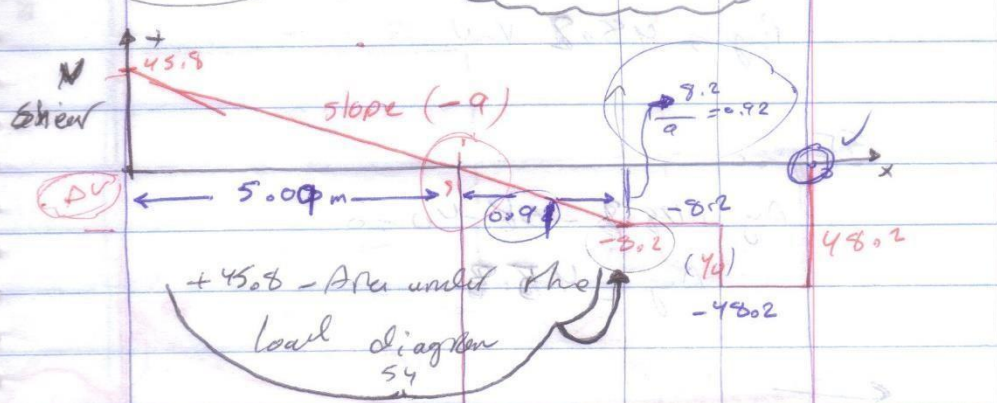 +
45.8
V
Shear
slope (-9)
8.2
9
=0.92
x
ΔV
5.09 m
0.91
-8.2
-8.2
(40)
48.2
-48.2
+45.8 - Area under the
load diagram
54